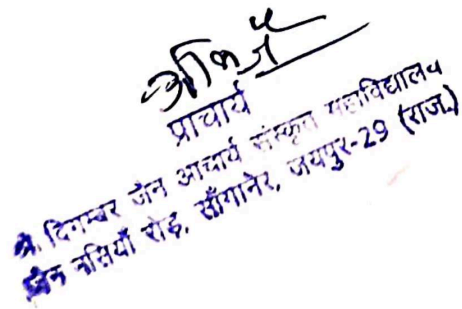 प्राचार्य
श्री. दिगम्बर जैन आचार्य संस्कृत महाविद्यालय
जैन नसियाँ रोड़, साँगानेर, जयपुर-29 (राज.)